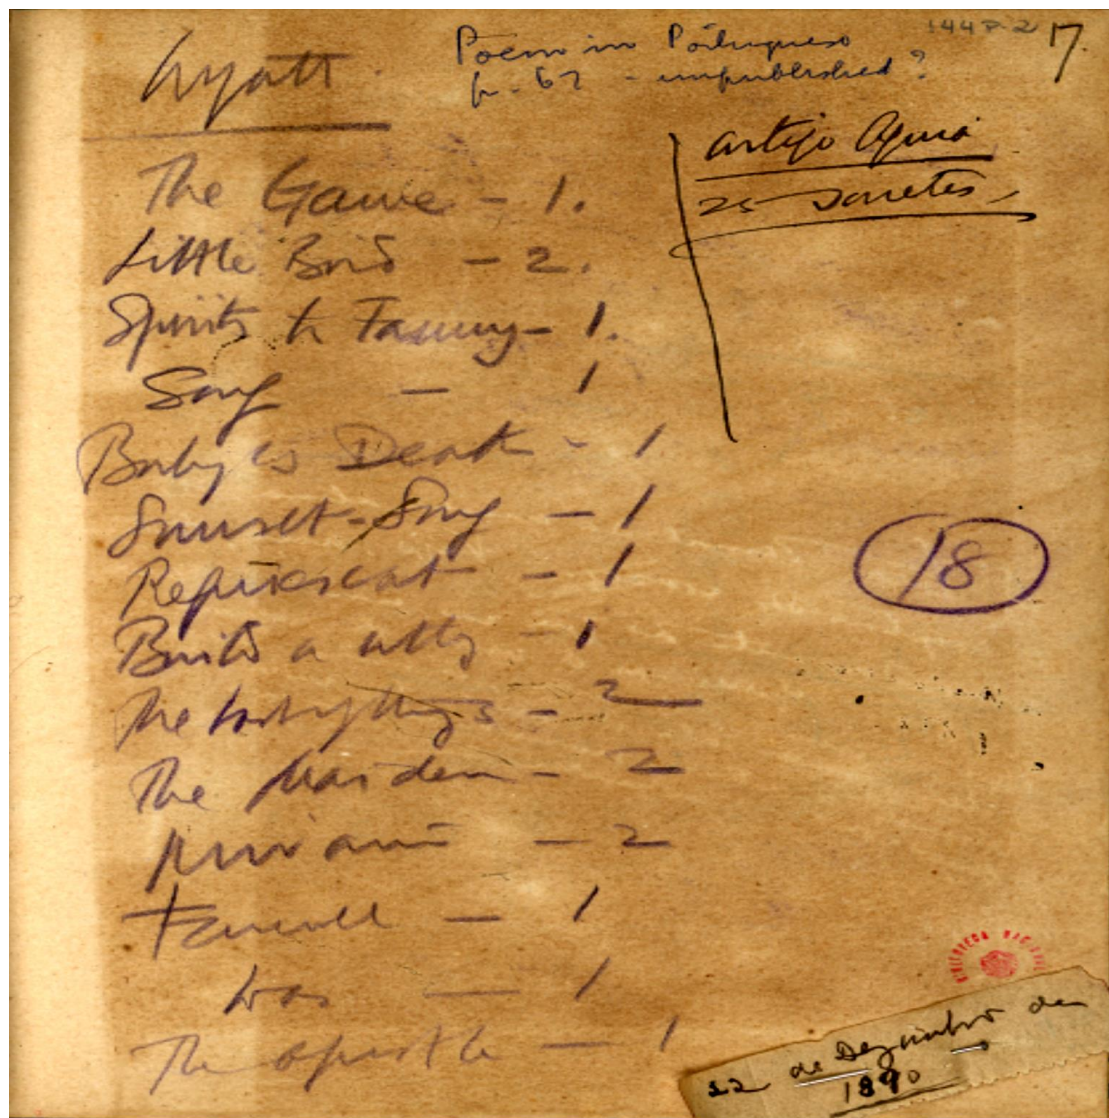 Wyatt
Poem in Portuguese
p. 67 - unpublished?
144P-2 17.
artigo Aguia
25 Sonetos
The Game - 1.
Little Bird - 2.
Spirits to Fanny - 1.
Song - 1
Baby's Death - 1
Sunset-Song - 1
Represent - 1
Build a - 1
18
The - 2
The Maiden - 2
- 2
Farewell - 1
- 1
The Apostle - 1
BIBLIOTECA NACIONAL
22 de Dezembro de
1890